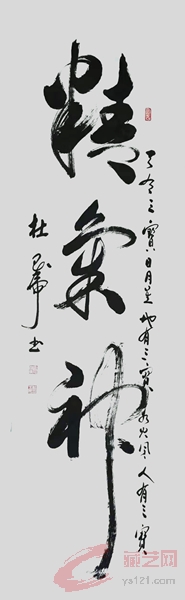 天有三寶日月星 地有三寶水火風 人有三寶
精氣神
杜
書
藏艺网
ys121.com